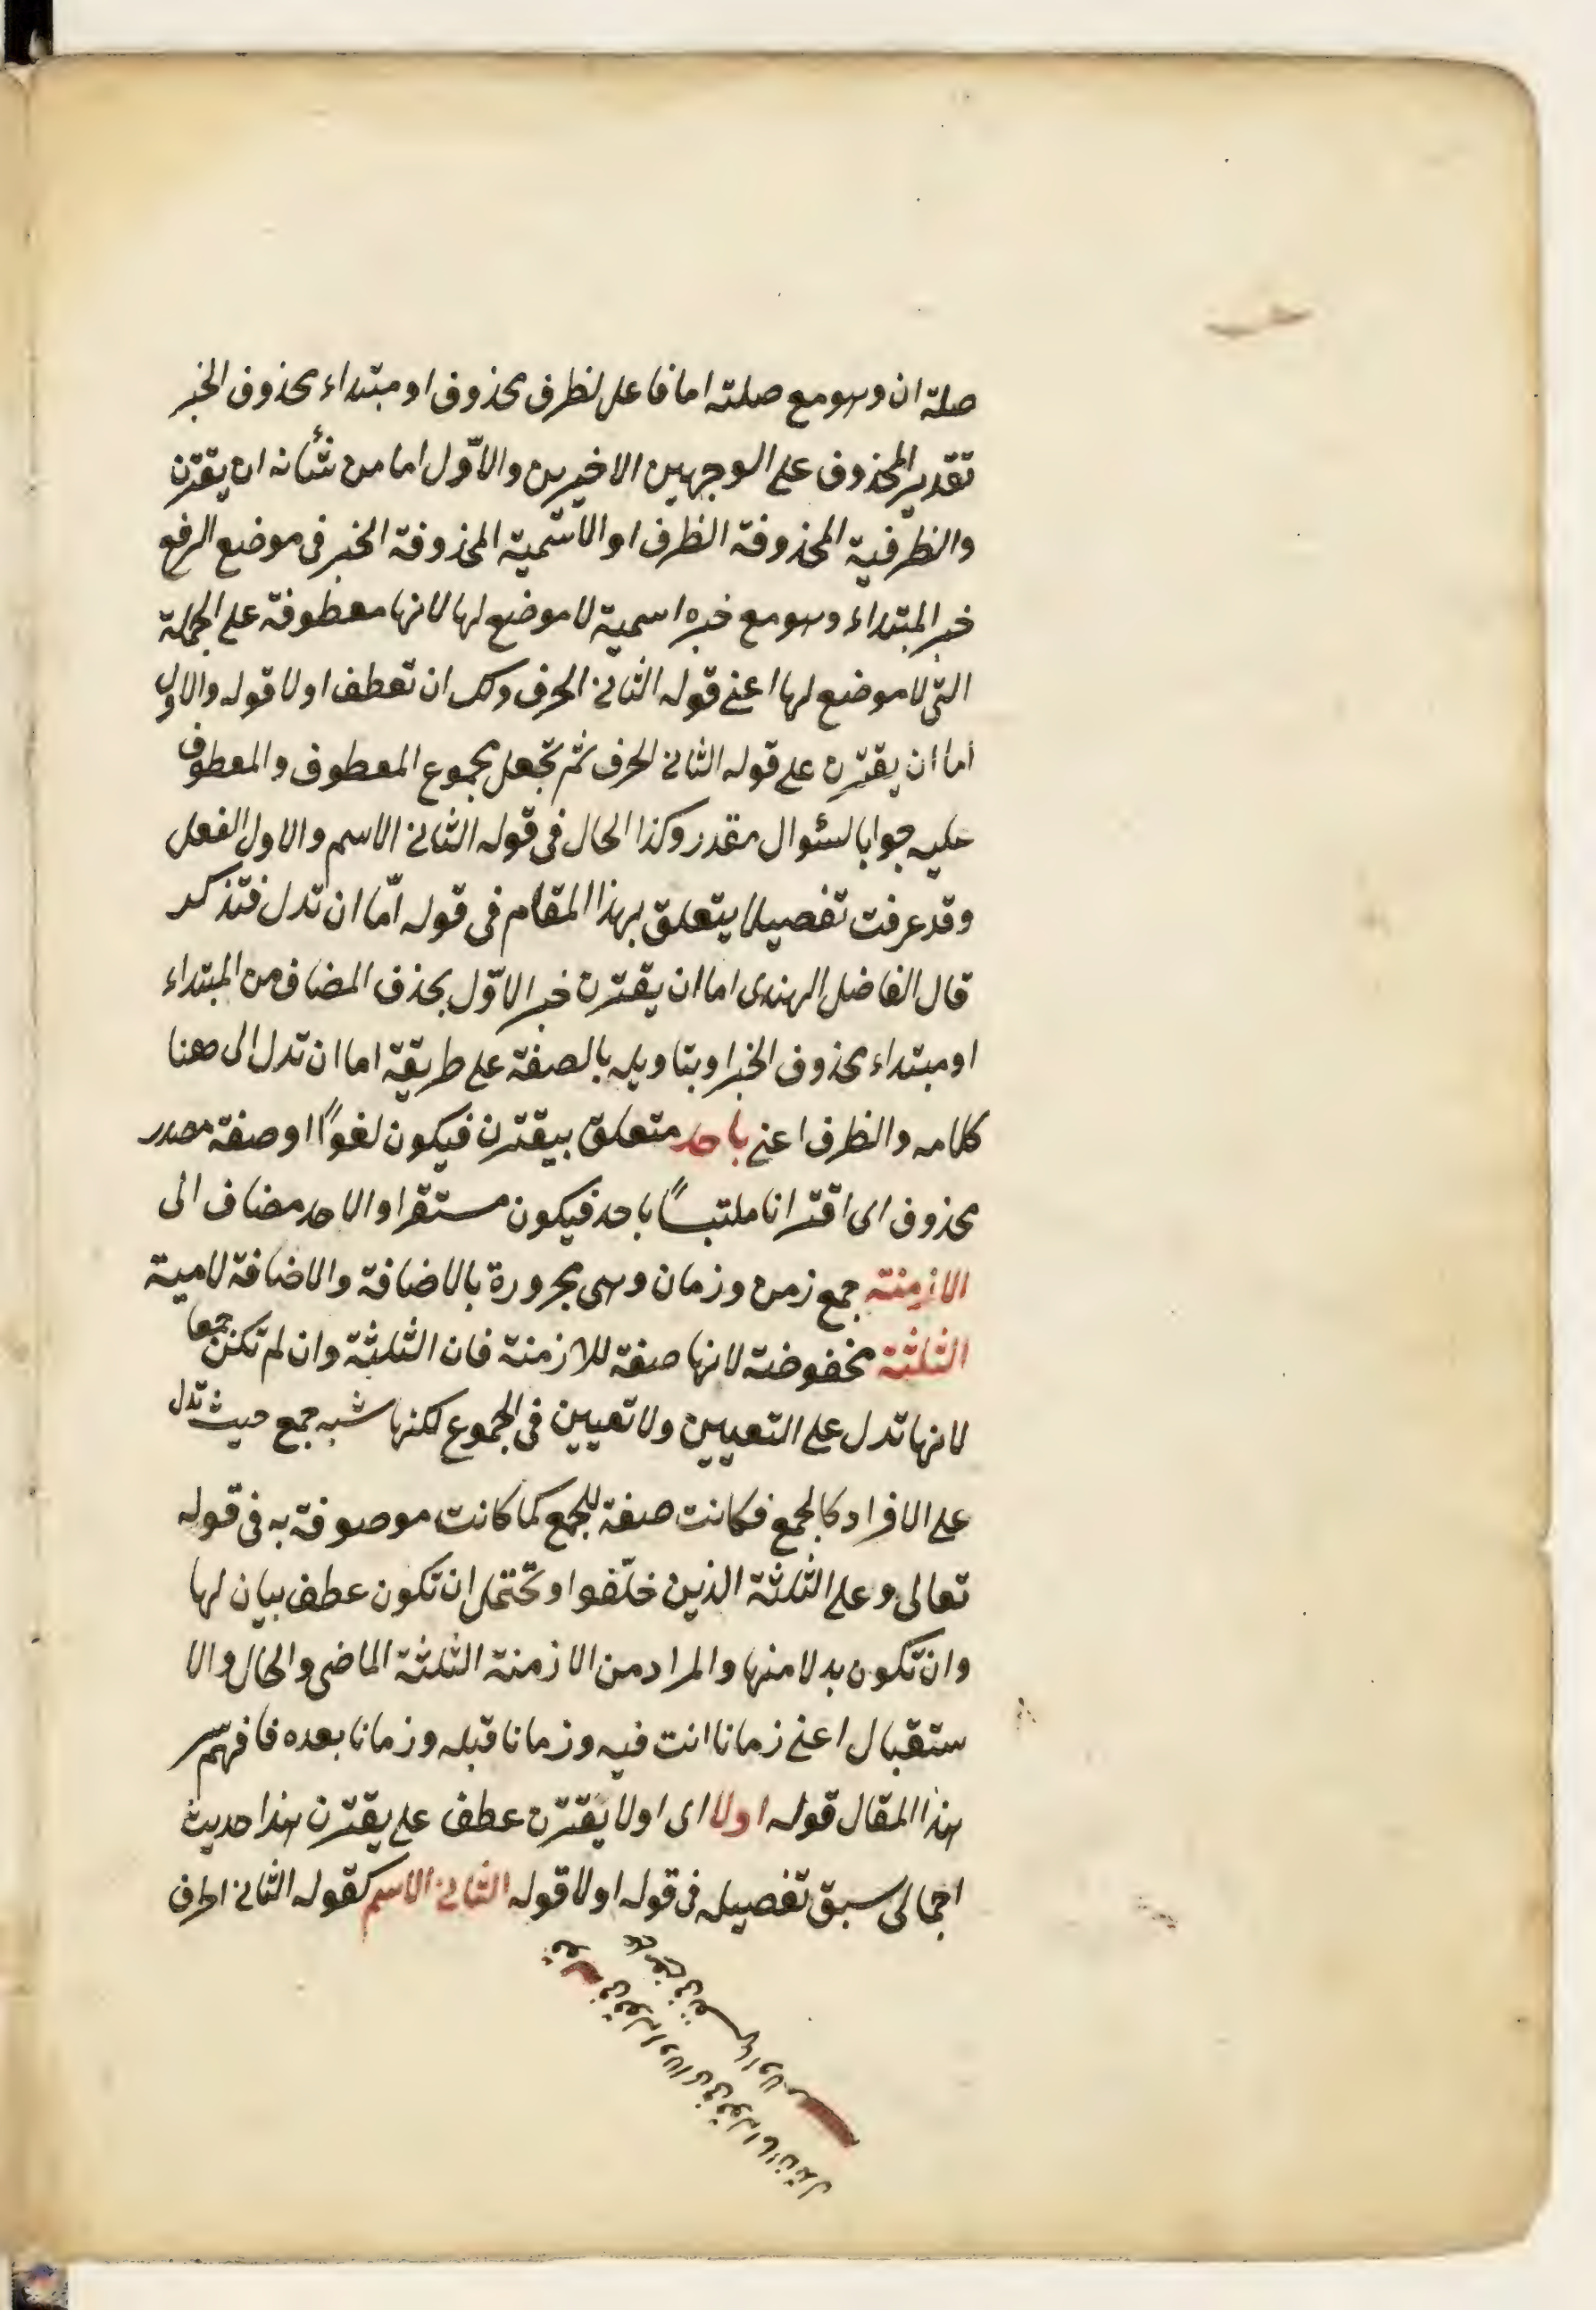 صلة ان وهو مع صلته اما فاعل لظرف محذوف او مبتداء محذوف الخبر
تقدير المحذوف على الوجهين الاخيرين والاوّل اما من شأنه ان يقترن
والظرفية المحذوفة الظرف او الاسمية المحذوفة الخبر فى موضع الرفع
خبر المبتداء وهو مع خبره اسمية لا موضع لها لانها معطوفة على الجملة
التى لا موضع لها اعنى قوله الثانى الحرف ولك ان تعطف اولا قوله والاول
اما ان يقترن على قوله الثانى الحرف ثم تجعل مجموع المعطوف والمعطوف
عليه جوابا لسئوال مقدر وكذا الحال فى قوله الثانى الاسم والاول الفعل
وقد عرفت تفصيلا يتعلق بهذا المقام فى قوله امّا ان تدل فتذكر
قال الفاضل الهندى اما ان يقترن خبر الاوّل بحذف المضاف من المبتداء
او مبتداء محذوف الخبر او بتاويله بالصفة على طريقة اما ان تدل الى هنا
كلامه والظرف اعنى باحد متعلق بيقترن فيكون لغواً او صفة مصدر
محذوف اى اقترانا ملتبساً باحد فيكون مستقرا والاحد مضاف الى
الازمنة جمع زمن وزمان وهى مجرورة بالاضافة والاضافة لامية
الثلثة مخفوضة لانها صفة للازمنة فان الثلثة وان لم تكن جمعا
لانها تدل على التعيين ولا تعيين فى الجموع لكنها شبه جمع حيث تدل
على الافراد كالجمع فكانت صفة للجمع كما كانت موصوفة به فى قوله
تعالى وعلى الثلثة الذين خلّفوا وتحتمل ان تكون عطف بيان لها
وان تكون بدلا منها والمراد من الازمنة الثلثة الماضى والحال والا
ستقبال اعنى زمانا انت فيه وزمانا قبله وزمانا بعده فافهم سر
هذا المقال قوله اولا اى اولا يقترن عطف على يقترن هذا حديث
اجمالى سبق تفصيله فى قوله اولا قوله الثانى الاسم كقوله الثانى الحرف